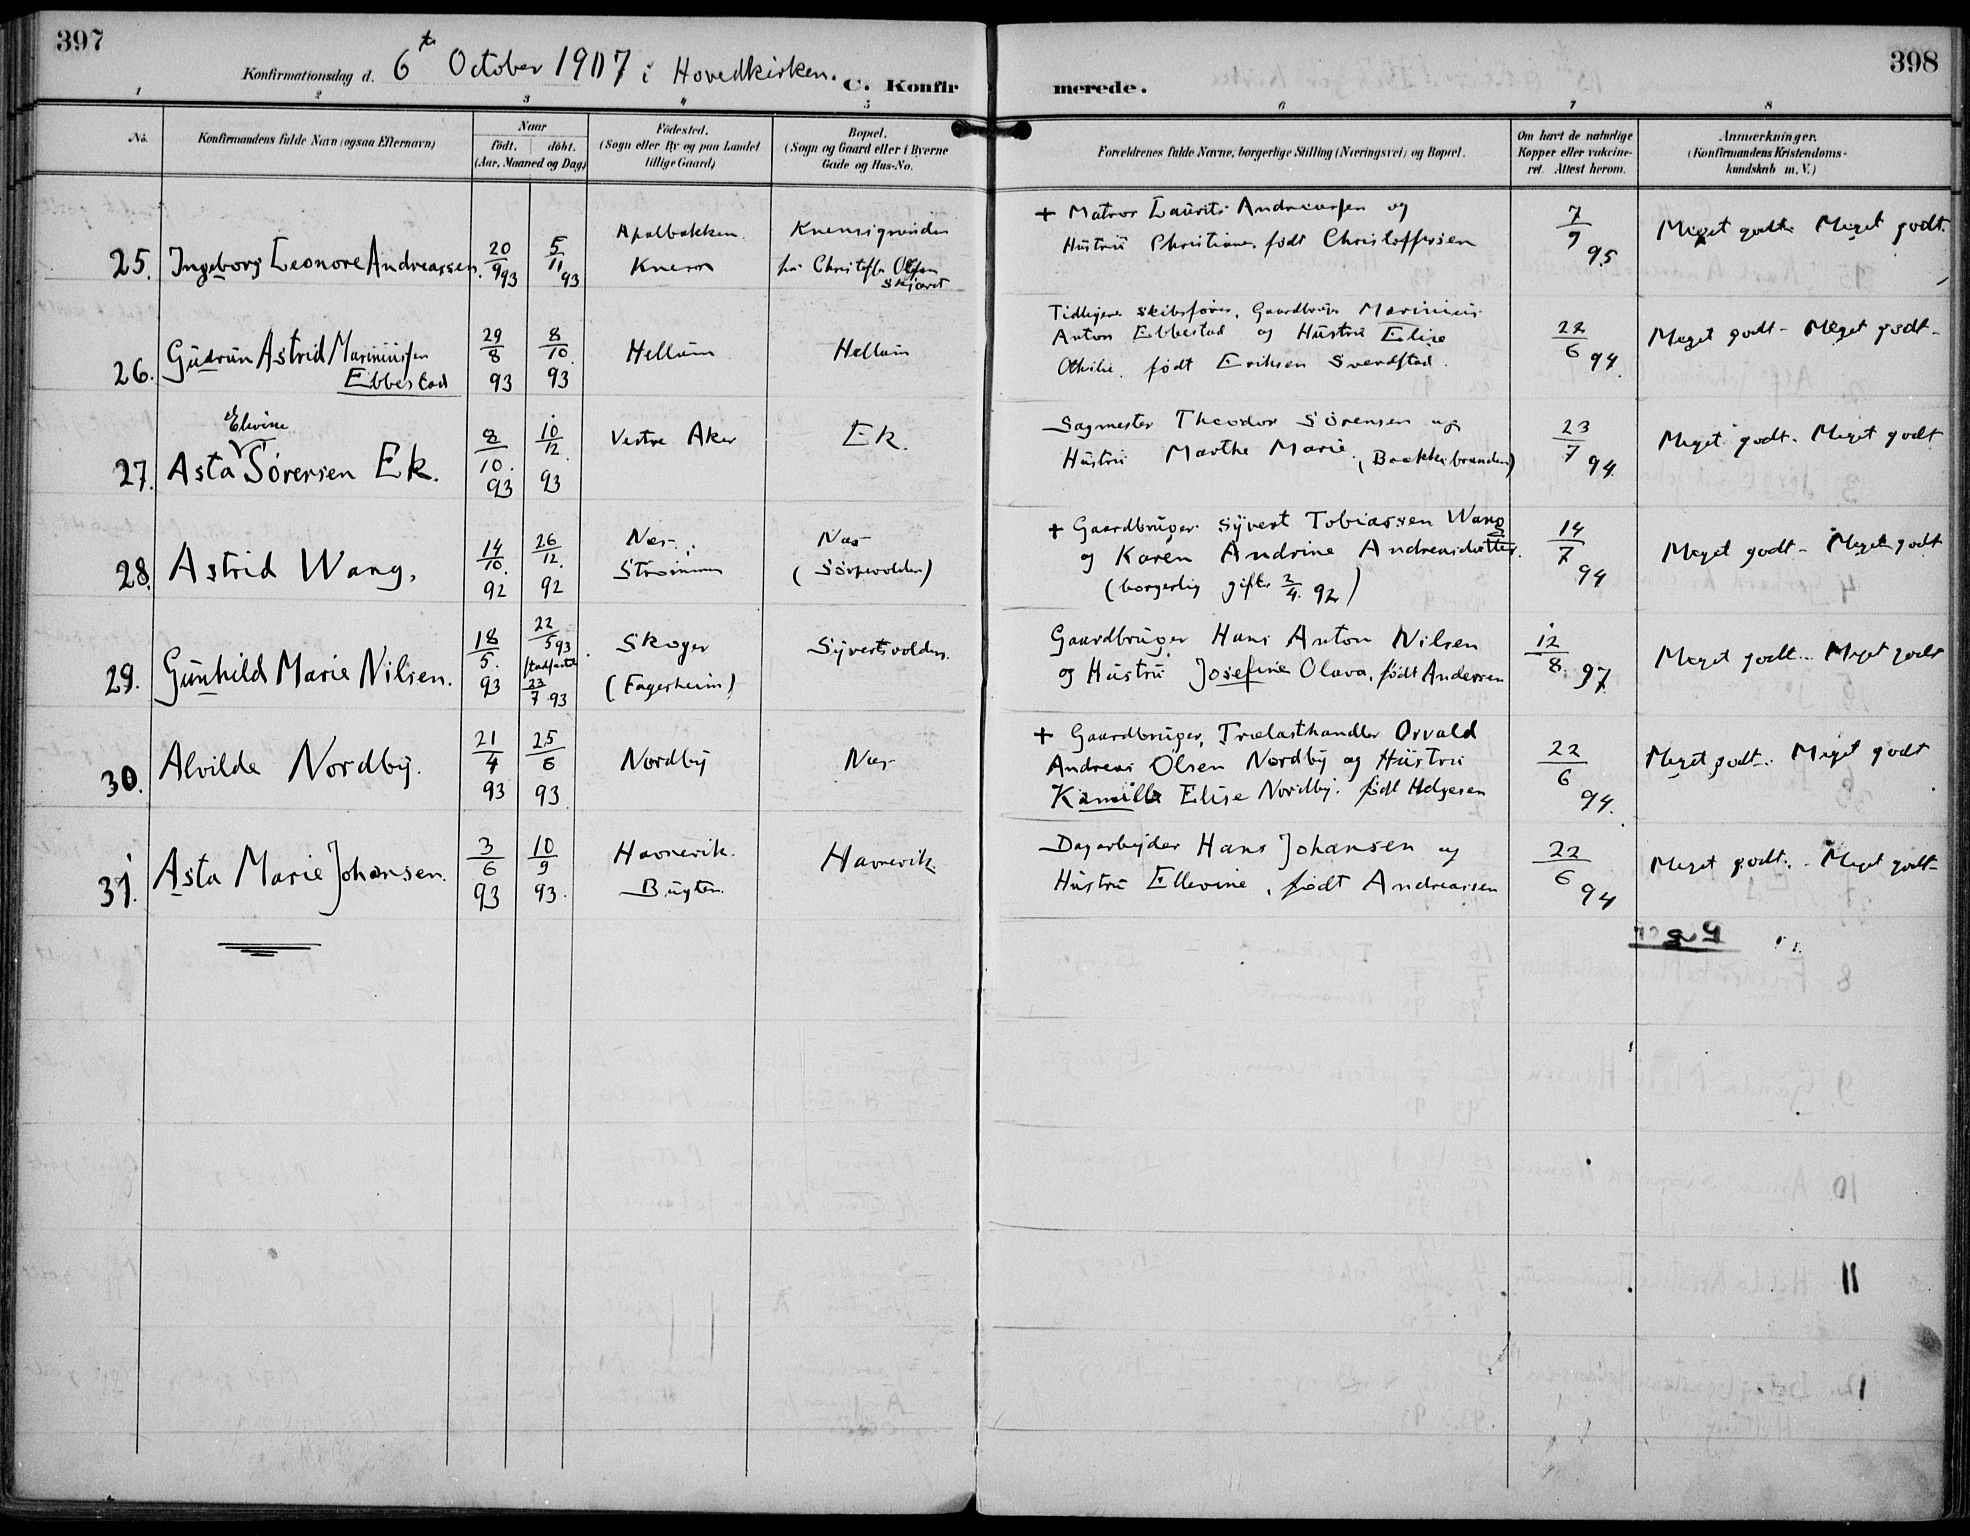 397
398
Konfirmationsdag d. 6te October 1907 i Hovedkirken.
C. Konfirmerede.
1 2 3 4 5 6 7 8
No.
Konfirmandens fulde Navn (ogsaa Efternavn)
Naar
født. døbt.
(Aar, Maaned og Dag)
Fødested.
(Sogn eller By og paa Landet
tillige Gaard)
Bopæl.
(Sogn og Gaard eller i Byerne
Gade og Hus-No.
Forældrenes fulde Navne, borgerlige Stilling (Næringsvei) og Bopæl.
Om havt de naturlige
Kopper eller vakcine-
ret. Attest herom.
Anmærkninger.
(Konfirmandens Kristendoms-
kundskab m. V.)
25. Ingeborg Leonore Andreassen.
20/9 93
5/11 93
Apalbakken
Knem
Knemsgrinden
hos Christoffer Olsen
Skjæret
+ Matros Laurits Andreassen og
Hustru Christiane, født Christoffersen
7/9 95
Meget godt. Meget godt.
26. Gudrun Astrid Mariniussen
Ebbestad
29/8 93
8/10 93
Hellum
Hellum
Tidligere Skibsfører, Gaardbruger Marinius
Anton Ebbestad og Hustru Elise
Othilie, født Eriksen Svendstad.
22/6 94
Meget godt - Meget godt -
27. Asta Elevine Sörensen Ek.
8/10. 93
10/12. 93
Vestre Aker
Ek.
Sagmester Theodor Sörensen og
Hustru Marthe Marie. (Baakkebraaden)
23/7 94
Meget godt. Meget godt
28. Astrid Wang.
14/10. 92
26/12. 92
Næs.
Strømmen
Næs
(Sörpevolden)
+ Gaardbruger Syvert Tobiassen Wang
og Karen Andrine Andreasdatter.
(borgerlig gifte 2/4. 92)
14/7 94
Meget godt - Meget godt
29. Gunhild Marie Nilsen.
18/5. 93
22/5 93
stadfæstet
23/7 93
Skoger
(Fagerheim)
Syvertsvolden.
Gaardbruger Hans Anton Nilsen
og Hustru Josefine Olava, født Andersen
12/8. 97
Meget godt. Meget godt
30. Alvilde Nordby.
21/4 93
25/6 93
Nordby
Næs
+ Gaardbruger, Trælasthandler Orvald
Andreas Olsen Nordby og Hustru
Kamilla Elise Nordby. født Helgesen
22/6 94.
Meget godt. Meget godt
31. Asta Marie Johansen.
3/6 93
10/9 93.
Havnevik.
Bugten.
Havnevik
Dagarbejder Hans Johansen og
Hustru Ellevine, født Andreassen
22/6 94
Meget godt. Meget godt -